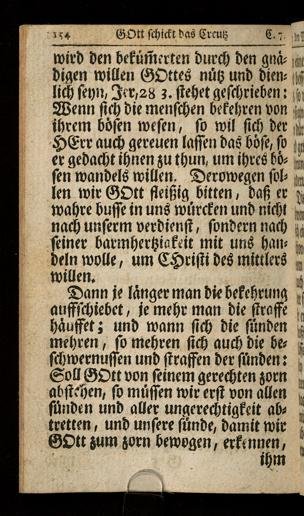 154 GOtt schickt das Creutz C. 7.
wird den bekümerten durch den gnä-
digen willen GOttes nütz und dien-
lich seyn, Jer, 28 3. stehet geschrieben:
Wenn sich die menschen bekehren von
ihrem bösen wesen, so wil sich der
HErr auch gereuen lassen das böse, so
er gedacht ihnen zu thun, um ihres bö-
sen wandels willen. Derowegen sol-
len wir GOtt fleißig bitten, daß er
wahre busse in uns würcken und nicht
nach unserm verdienst, sondern nach
seiner barmhertzigkeit mit uns han-
deln wolle, um CHristi des mittlers
willen.
Dann je länger man die bekehrung
auffschiebet, je mehr man die straffe
häuffet; und wann sich die sünden
mehren, so mehren sich auch die be-
schwernussen und straffen der sünden:
Soll GOtt von seinem gerechten zorn
abstehen, so müssen wir erst von allen
sünden und aller ungerechtigkeit ab-
tretten, und unsere sünde, damit wir
GOtt zum zorn bewogen, erkennen,
ihm